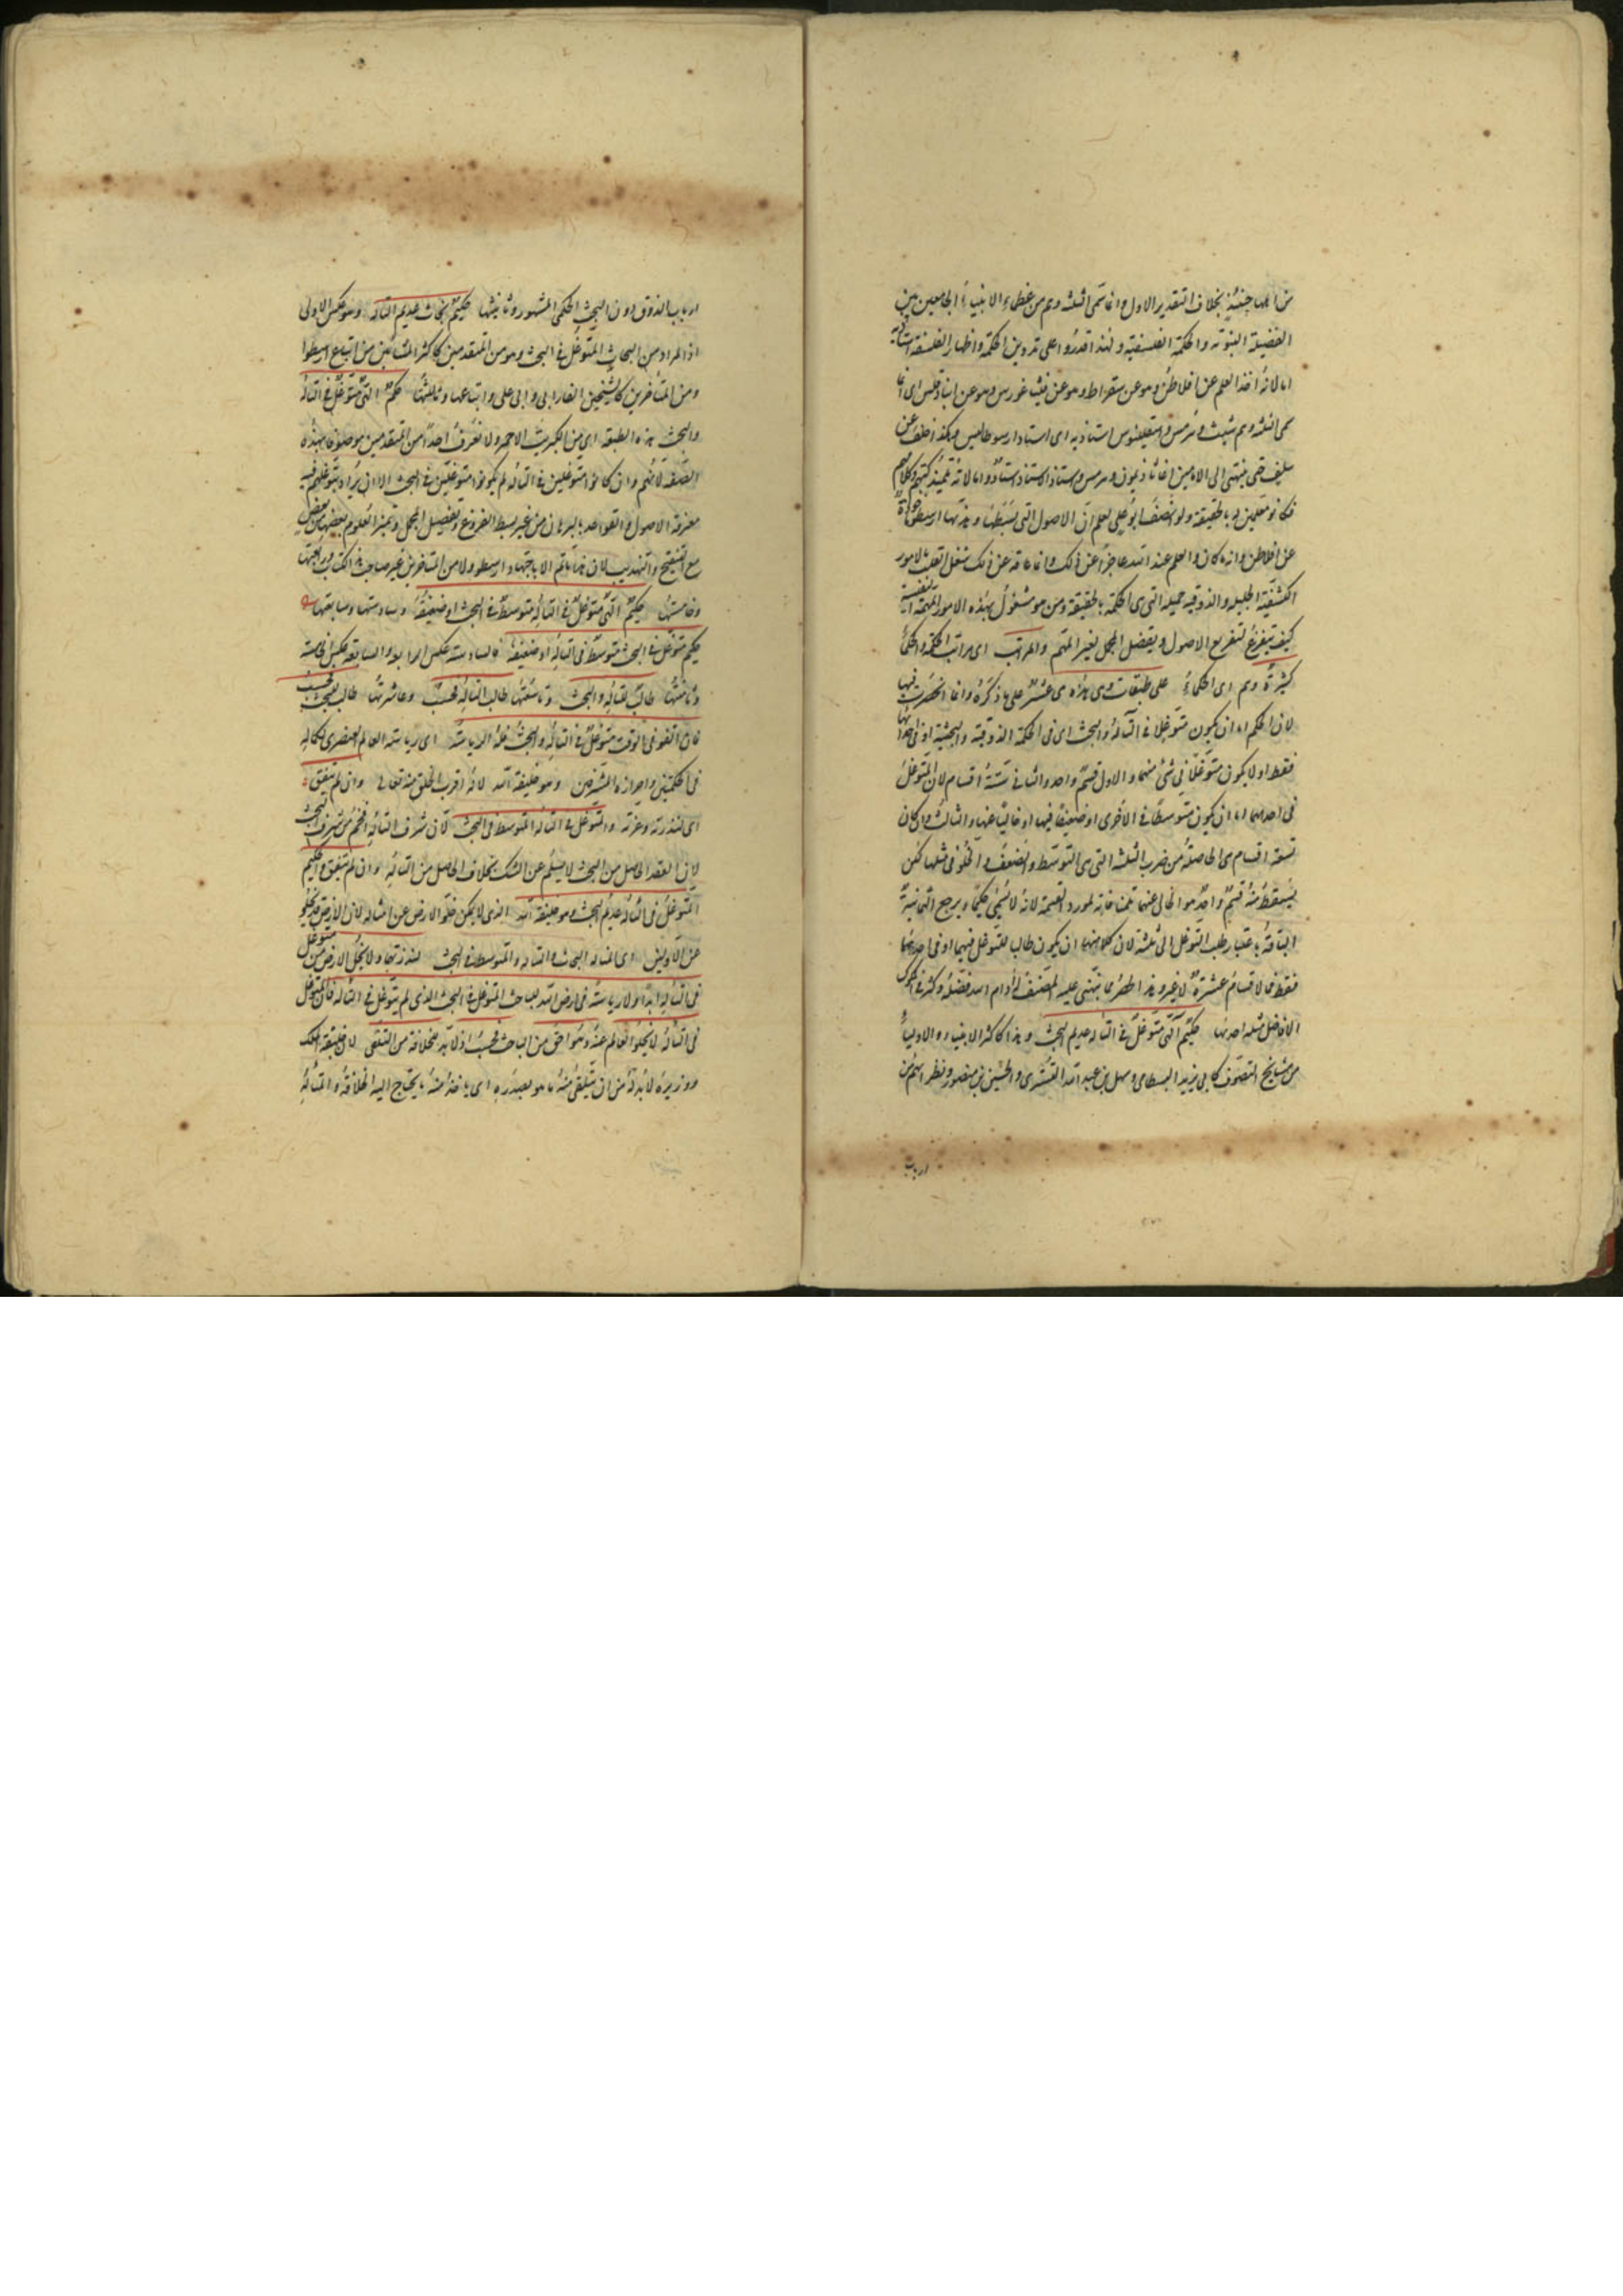 من اهلها حينئذ بخلاف التقدير الاول وانما سمى الثلثة وهم من عظماء الانبياء الجامعين بين
الفضيلة النبوية والحكمة الفلسفية ولهذا قدروا على تدوين الحكمة واظهار الفلسفة
اما لانه اخذ العلم عن افلاطن وهو عن سقراط وهو عن فيثاغورس وهو عن انباذقلس
وهم شيث وهرمس واسقلينوس استاذيه اى استاذ ارسوطاليس وهكذا خلف عن
سلف حتى ينتهى الى الامامين اغاثاذيمون وهرمس واستاذ الاستاذ استاذ واما لانه تلميذ كتبهم وكلامهم
فكانوا معلمين له بالحقيقة ولو انصف ابو على لعلم ان الاصول التى بسطها وهذبها ارسطو ماخوذة
عن افلاطن وانه ما كان والعلم عند الله عاجزا عن ذلك وانما عاقه عن ذلك شغل القلب بالامور
الكشفية الجليلة والذوقية الجميلة التى هى الحكمة بالحقيقة ومن هو مشغول بهذه الامور المهمة النفيسة
كيف يتفرغ لتفريع الاصول وتفصيل المجمل لغير المهم والمراتب اى مراتب الحكمة والحكماء
كثيرة وهم اى الحكماء على طبقات وهى هذه هى عشر على ما ذكره وانما انحصرت فيها
لان الحكيم اما ان يكون متوغلا فى التأله والبحث اى فى الحكمة الذوقية والبحثية او فى احدهما
فقط اولا يكون متوغلا فى شئ منهما والاول قسم واحد والثانى ستة اقسام لان المتوغل
فى احدهما اما ان يكون متوسطا فى الاخرى او ضعيفا فيها او خاليا عنها والثالث وان كان
تسعة اقسام هى الحاصلة من ضرب الثلثة التى هى التوسط والضعف والخلو فى مثلها لكن
يسقط منه قسم واحد هو الخالى عنهما لمنافاته لمورد القسمة لانه لا يسمى حكيما ويرجع الثمانية
الباقية باعتبار طلب التوغل الى ثلثة لان كلا منها ان يكون طالب للتوغل فيهما او فى احدهما
فقط فالاقسام عشرة لا غير وهذا الحصر مما نبهنى عليه المصنف ادام الله فضله وكثر فى
الافاضل مثله احدها حكيم آلهى متوغل فى التأله عديم البحث وهذا كاكثر الانبياء والاولياء
من مشايخ التصوف كابى يزيد البسطامى وسهل بن عبد الله التسترى والحسين بن منصور ونظرائهم من
ارباب
ارباب الذوق دون البحث الحكمى المشهور وثانيتها حكيم بحاث عديم التأله وهو عكس الاولى
اذ المراد من البحاث المتوغل فى البحث وهو من المتقدمين كاكثر المشائين من اتباع ارسطو
ومن المتاخرين كالشيخين الفارابى وابى على واتباعهما وثالثتها حكيم آلهى متوغل فى التأله
والبحث هذه الطبقة اى من الكبريت الاحمر ولا نعرف احدا من المتقدمين موصوفا بهذه
الصفة لانهم وان كانوا متوغلين فى التأله لم يكونوا متوغلين فى البحث الا ان يراد بتوغلهم فيه
معرفة الاصول والقواعد بالبرهان من غير بسط الفروع وتفصيل المجمل وتمييز العلوم بعضها عن بعض
مع التنقيح والتهذيب لان هذا ما تم الا باجتهاد ارسطو ولا من المتاخرين غير صاحب هذا الكتاب ورابعتها
وخامستها حكيم آلهى متوغل فى التأله متوسط فى البحث او ضعيفه وسادستها وسابعتها
حكيم متوغل فى البحث متوسط فى التأله او ضعيفه فالسادسة عكس الرابعة والسابعة عكس الخامسة
وثامنتها طالب للتأله والبحث وتاسعتها طالب للتأله فحسب وعاشرتها طالب للبحث فحسب
فان اتفق فى الوقت متوغل فى التأله والبحث فله الرياسة اى رياسة العالم العنصرى لكماله
فى الحكمتين واحرازه الشرفين وهو خليفة الله لانه اقرب الخلق منه تعالى وان لم يتفق
اى لندرته وعزته فالمتوغل فى التأله المتوسط فى البحث لان شرف التأله افخم من شرف البحث
لان العقد الحاصل من البحث لا يسلم عن الشك بخلاف الحاصل من التأله وان لم يتفق فالحكيم
المتوغل فى التأله عديم البحث وهو خليفة الله الذى لا يمكن خلو الارض عن امثاله لان الارض قد يخلو
عن الاولين اى المتأله البحاث والمتأله والمتوسط فى البحث لندرتهما ولا تخلو الارض عن متوغل
فى التأله ابدا ولا رياسة فى ارض الله للباحث المتوغل فى البحث الذى لم يتوغل فى التأله فان المتوغل
فى التأله لا يخلو العالم عنه وهو احق من الباحث فحسب اذ لا بد للخلافة من التلقى لان خليفة الملك
ووزيره لا بد له من ان يتلقى منه ما هو بصدده اى ياخذ منه ما يحتاج اليه الخلافة والمتأله